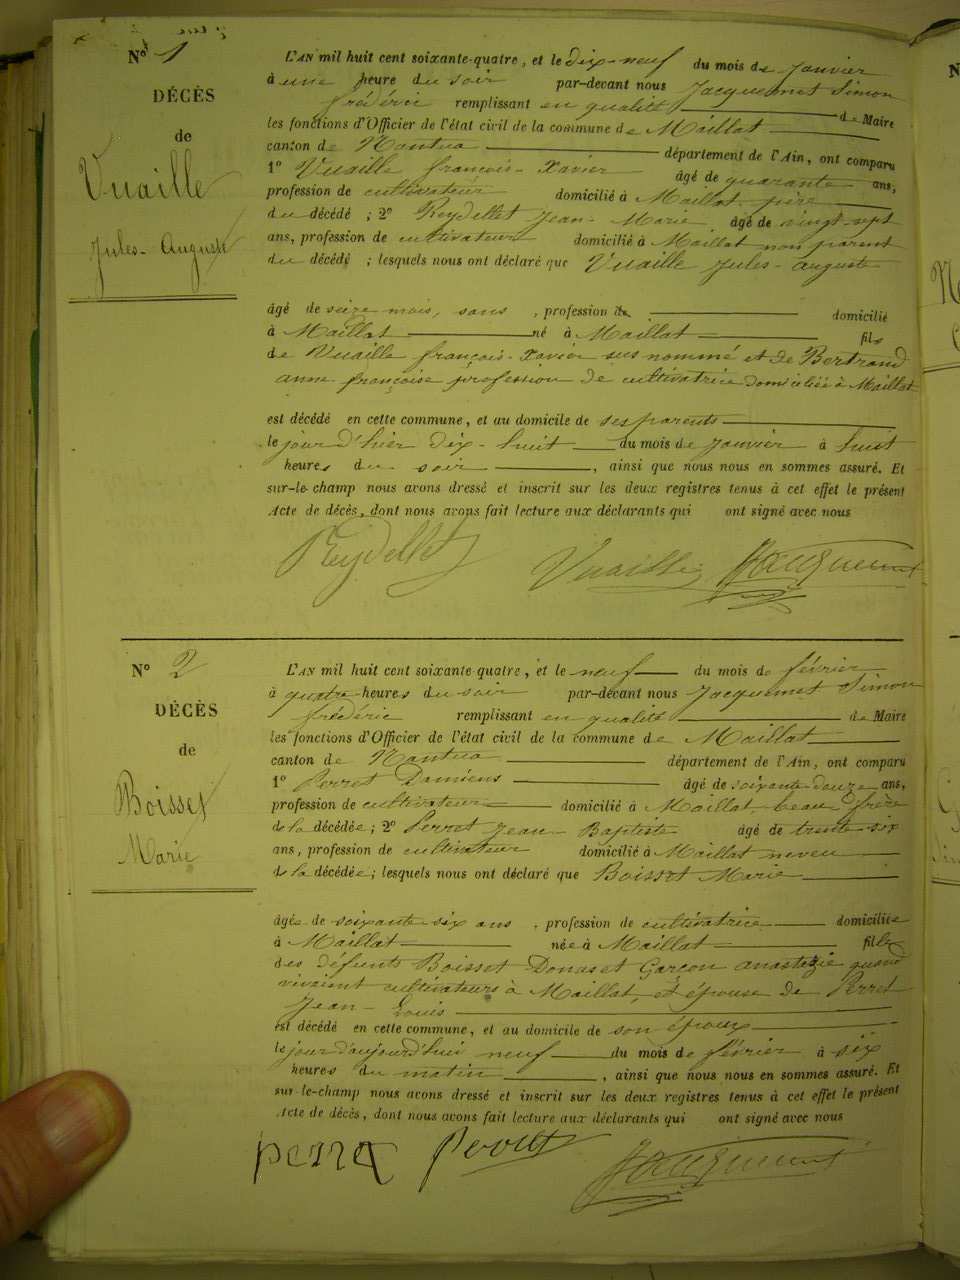 N° 1
DÉCÈS
de
Vuaille
Jules-Auguste
L'AN mil huit cent soixante-quatre, et le dix-neuf du mois de Janvier
à une heure du soir par-devant nous Jacquemet Simon
frédéric remplissant en qualité de Maire
les fonctions d'Officier de l'état civil de la commune de Maillat
canton de Nantua département de l'Ain, ont comparu
1° Vuaille françois-Xavier âgé de quarante ans,
profession de cultivateur domicilié à Maillat père
du décédé ; 2° Reydellet Jean-Marie âgé de vingt sept
ans, profession de cultivateur domicilié à Maillat non parent
du décédé ; lesquels nous ont déclaré que Vuaille Jules-auguste
âgé de seize mois, sans , profession de domicilié
à Maillat né à Maillat fils
de Vuaille françois-Xavier sus nommé et de Bertrand
anne françoise profession de cultivatrice domiciliée à Maillat
est décédé en cette commune, et au domicile de ses parents
le jour d'hier dix-huit du mois de Janvier à huit
heures du soir , ainsi que nous nous en sommes assuré. Et
sur-le-champ nous avons dressé et inscrit sur les deux registres tenus à cet effet le présent
Acte de décès, dont nous avons fait lecture aux déclarants qui ont signé avec nous
Reydellet Vuaille Jacquemet
N° 2
DÉCÈS
de
Boisset
Marie
L'AN mil huit cent soixante-quatre, et le neuf du mois de février
à quatre heures du soir par-devant nous Jacquemet Simon
frédéric remplissant en qualité de Maire
les fonctions d'Officier de l'état civil de la commune de Maillat
canton de Nantua département de l'Ain, ont comparu
1° Perret Damiens âgé de soixante douze ans,
profession de cultivateur domicilié à Maillat beau frère
de la décédée ; 2° Perret Jean Baptiste âgé de trente six
ans, profession de cultivateur domicilié à Maillat neveu
de la décédée ; lesquels nous ont déclaré que Boisset Marie
âgée de soixante six ans , profession de cultivatrice domiciliée
à Maillat née à Maillat fille
des défunts Boisset Donas et Garçon anastazie quand
vivaient cultivateurs à Maillat, et épouse de Perret
Jean-Louis
est décédé en cette commune, et au domicile de son époux
le jour d'aujourd'hui neuf du mois de février à six
heures du matin , ainsi que nous nous en sommes assuré. Et
sur-le-champ nous avons dressé et inscrit sur les deux registres tenus à cet effet le présent
Acte de décès, dont nous avons fait lecture aux déclarants qui ont signé avec nous
Perret Jacquemet